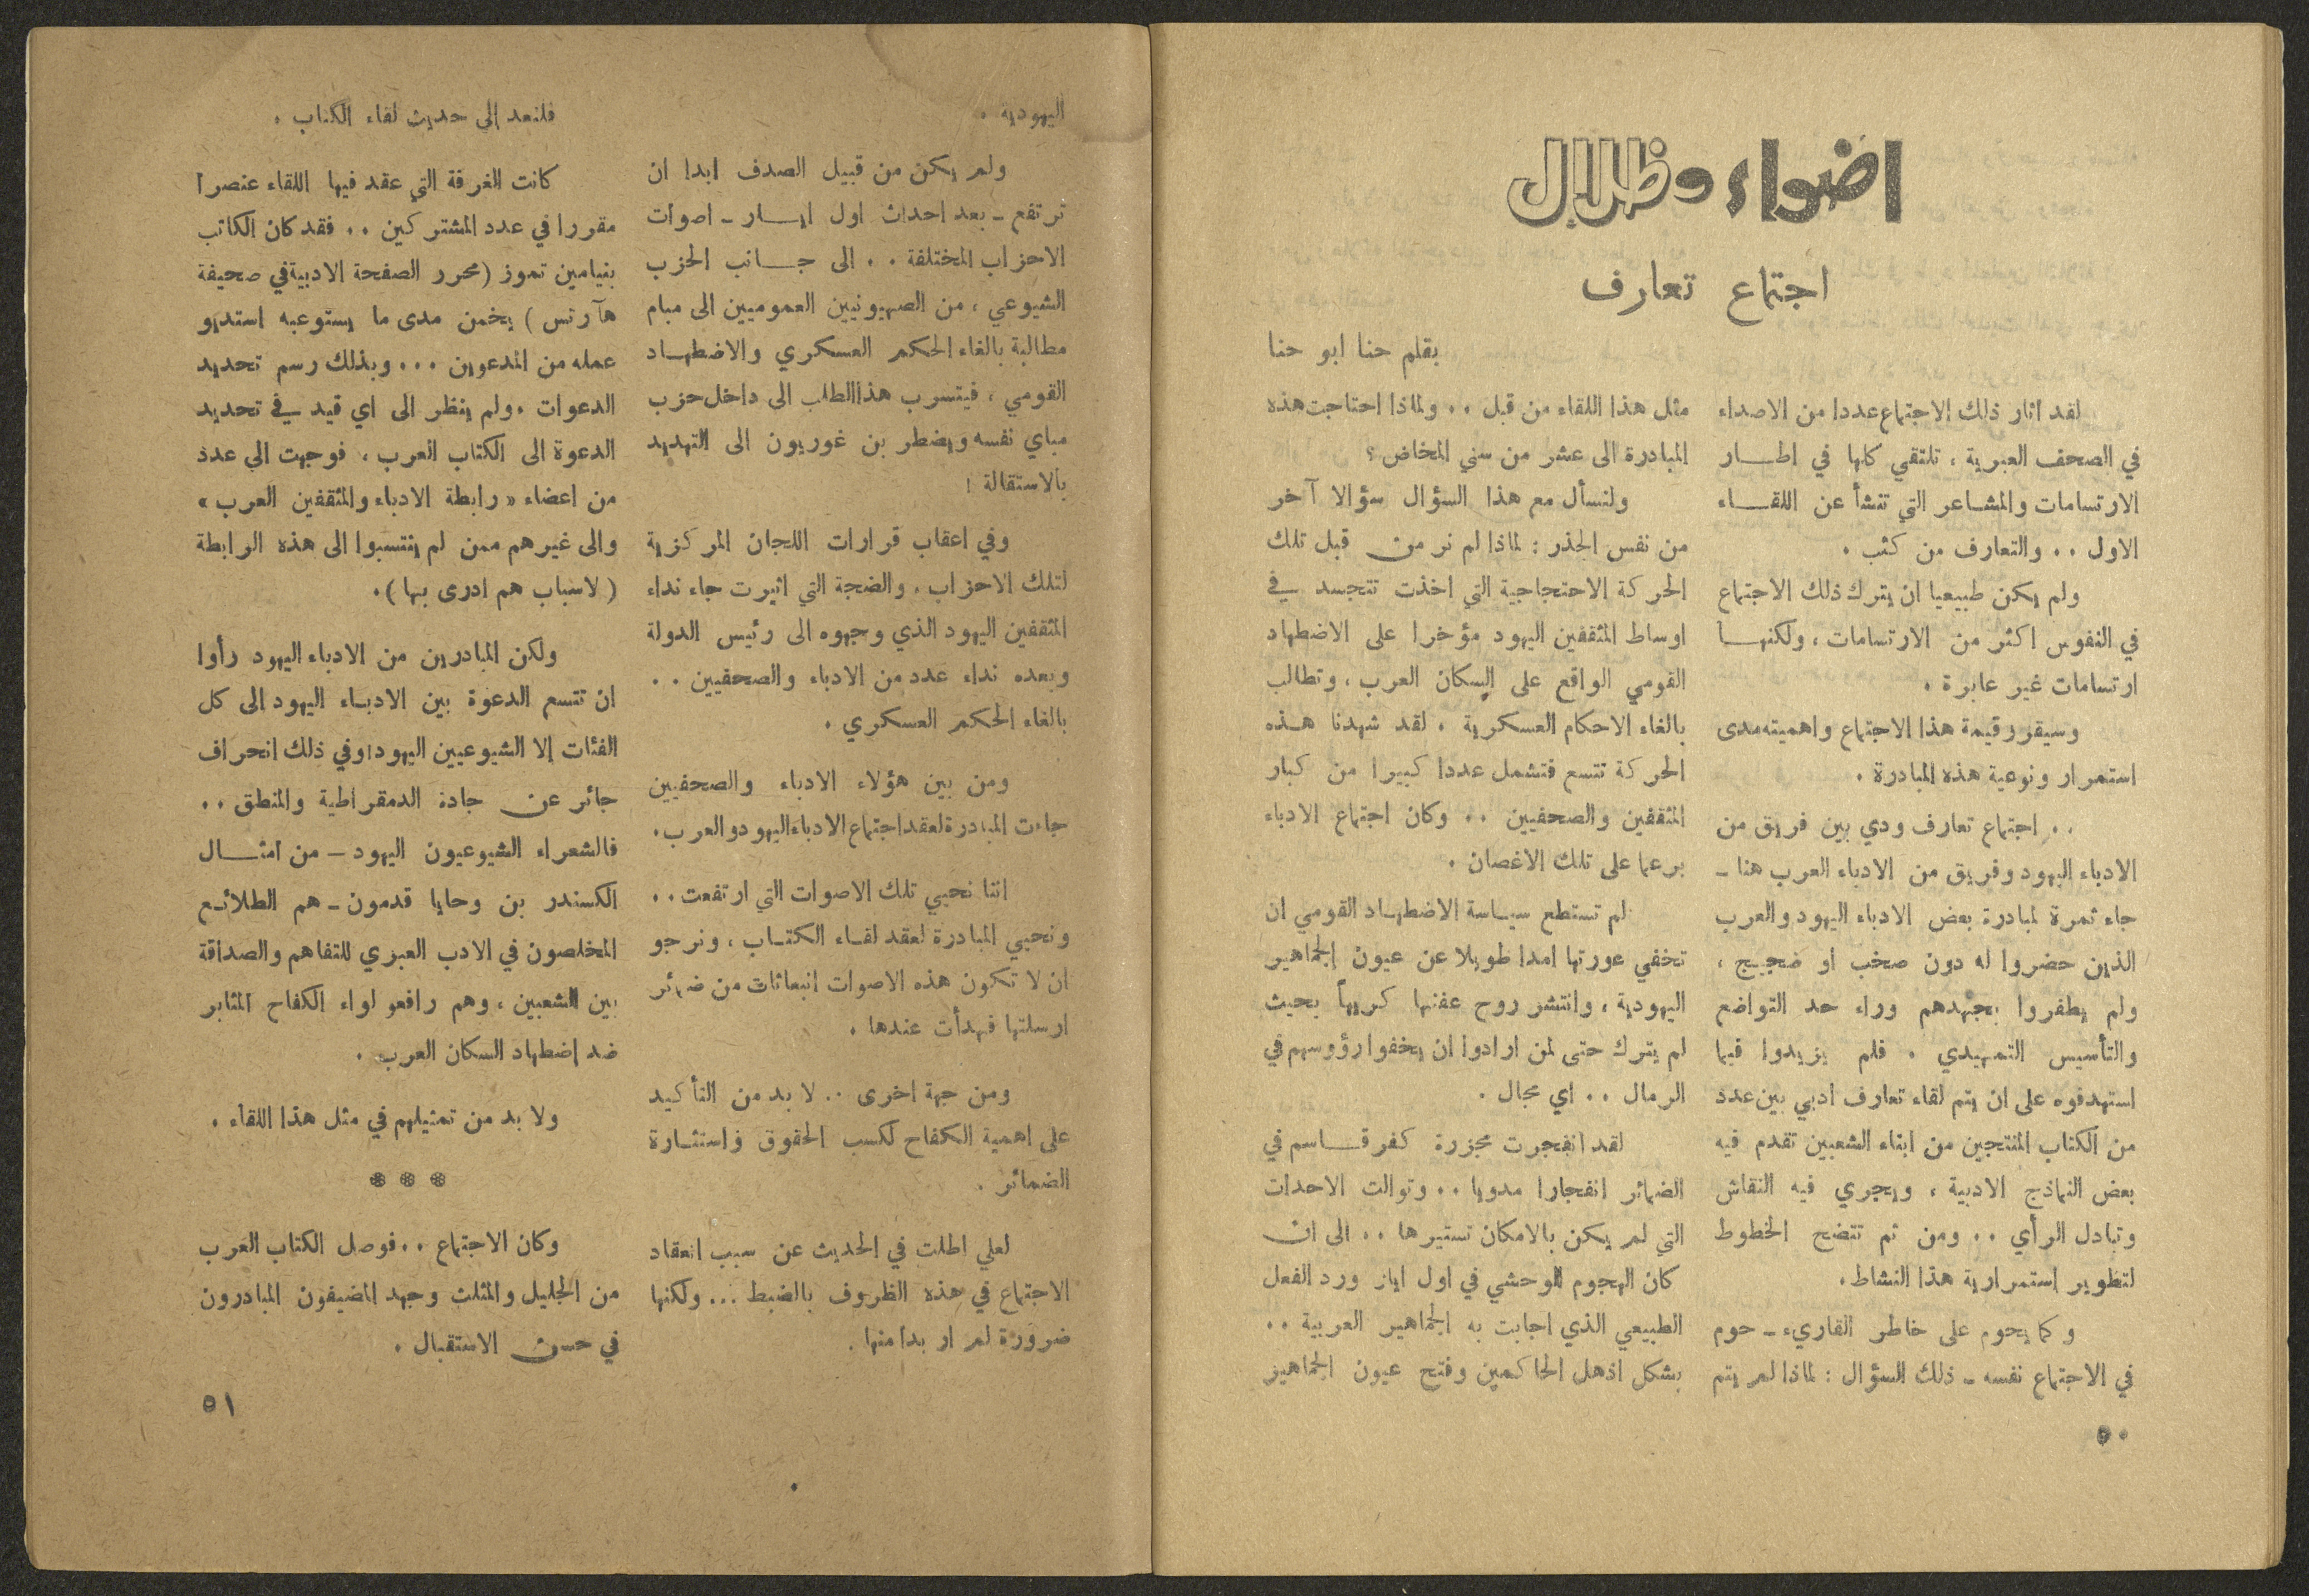 اضواء وظلال
اجتماع تعارف
بقلم حنا ابو حنا
لقد اثار ذلك الاجتماع عددا من الاصداء
في الصحف العبرية ، تلتقي كلها في اطار
الارتسامات والمشاعر التي تنشأ عن اللقاء
الاول . . والتعارف من كثب .
ولم يكن طبيعيا ان يترك ذلك الاجتماع
في النفوس اكثر من الارتسامات ، ولكنها
ارتسامات غير عابرة .
وسيقرر قيمة هذا الاجتماع واهميته مدى
استمرار ونوعية هذه المبادرة .
. . اجتماع تعارف ودي بين فريق من
الادباء اليهود وفريق من الادباء العرب هنا -
جاء ثمرة لمبادرة بعض الادباء اليهود والعرب
الذين حضروا له دون صخب او ضجيج ،
ولم يطفروا بجهدهم وراء حد التواضع
والتأسيس التمهيدي . فلم يزيدوا فيما
استهدفوه على ان يتم لقاء تعارف ادبي بين عدد
من الكتاب المنتجين من ابناء الشعبين تقدم فيه
بعض النماذج الادبية ، ويجري فيه النقاش
وتبادل الرأي . . ومن ثم تتضح الخطوط
لتطوير استمرارية هذا النشاط .
وكما يحوم على خاطر القاريء - حوم
في الاجتماع نفسه - ذلك السؤال : لماذا لم يتم
مثل هذا اللقاء من قبل . . ولماذا احتاجت هذه
المبادرة الى عشر من سني المخاض ؟
ولنسأل مع هذا السؤال سؤالا آخر
من نفس الجذر : لماذا لم نر من قبل تلك
الحركة الاحتجاجية التي اخذت تتجسد في
اوساط المثقفين اليهود مؤخرا على الاضطهاد
القومي الواقع على السكان العرب ، وتطالب
بالغاء الاحكام العسكرية . لقد شهدنا هذه
الحركة تتسع فتشمل عددا كبيرا من كبار
المثقفين والصحفيين . . وكان اجتماع الادباء
برعما على تلك الاغصان .
لم تستطع سياسة الاضطهاد القومي ان
تخفي عورتها امدا طويلا عن عيون الجماهير
اليهودية ، وانتشر روح عفنها كريها بحيث
لم يترك حتى لمن ارادوا ان يخفوا رؤوسهم في
الرمال . . اي مجال .
لقد انفجرت مجزرة كفر قاسم في
الضمائر انفجارا مدويا . . وتوالت الاحداث
التي لم يكن بالامكان تستيرها . . الى ان
كان الهجوم الوحشي في اول ايار ورد الفعل
الطبيعي الذي اجابت به الجماهير العربية . .
بشكل اذهل الحاكمين وفتح عيون الجماهير
٥٠
اليهودية .
ولم يكن من قبيل الصدف ابدا ان
ترتفع - بعد احداث اول ايار - اصوات
الاحزاب المختلفة . . الى جانب الحزب
الشيوعي ، من الصهيونيين العموميين الى مبام
مطالبة بالغاء الحكم العسكري والاضطهاد
القومي ، فيتسرب هذا الطلب الى داخل حزب
مباي نفسه ويضطر بن غوريون الى التهديد
بالاستقالة !
وفي اعقاب قرارات اللجان المركزية
لتلك الاحزاب ، والضجة التي اثيرت جاء نداء
المثقفين اليهود الذي وجهوه الى رئيس الدولة
وبعده نداء عدد من الادباء والصحفيين . .
بالغاء الحكم العسكري .
ومن بين هؤلاء الادباء والصحفيين
جاءت المبادرة لعقد اجتماع الادباء اليهود والعرب .
اننا نحيي تلك الاصوات التي ارتفعت . .
ونحيي المبادرة لعقد لقاء الكتاب ، ونرجو
ان لا تكون هذه الاصوات انبعاثات من ضمائر
ارسلتها فهدأت عندها .
ومن جهة اخرى . . لا بد من التأكيد
على اهمية الكفاح لكسب الحقوق واستثارة
الضمائر .
لعلي اطلت في الحديث عن سبب انعقاد
الاجتماع في هذه الظروف بالضبط ... ولكنها
ضرورة لم ار بدا منها .
فلنعد الى حديث لقاء الكتاب .
كانت الغرفة التي عقد فيها اللقاء عنصرا
مقررا في عدد المشتركين . . فقد كان الكاتب
بنيامين تموز (محرر الصفحة الادبية في صحيفة
هآرتس ) يخمن مدى ما يستوعبه استديو
عمله من المدعوين . . . وبذلك رسم تحديد
الدعوات . ولم ينظر الى اي قيد في تحديد
الدعوة الى الكتاب العرب ، فوجهت الي عدد
من اعضاء « رابطة الادباء والمثقفين العرب »
والى غيرهم ممن لم ينتسبوا الى هذه الرابطة
( لاسباب هم ادرى بها ) .
ولكن المبادرين من الادباء اليهود رأوا
ان تتسع الدعوة بين الادباء اليهود الى كل
الفئات إلا الشيوعيين اليهود ! وفي ذلك انحراف
جائر عن جادة الدمقراطية والمنطق . .
فالشعراء الشيوعيون اليهود - من امثال
الكسندر بن وحايا قدمون - هم الطلائع
المخلصون في الادب العبري للتفاهم والصداقة
بين الشعبين ، وهم رافعو لواء الكفاح المثابر
ضد إضطهاد السكان العرب .
ولا بد من تمثيلهم في مثل هذا اللقاء .
* * *
وكان الاجتماع . . فوصل الكتاب العرب
من الجليل والمثلث وجهد المضيفون المبادرون
في حسن الاستقبال .
٥١